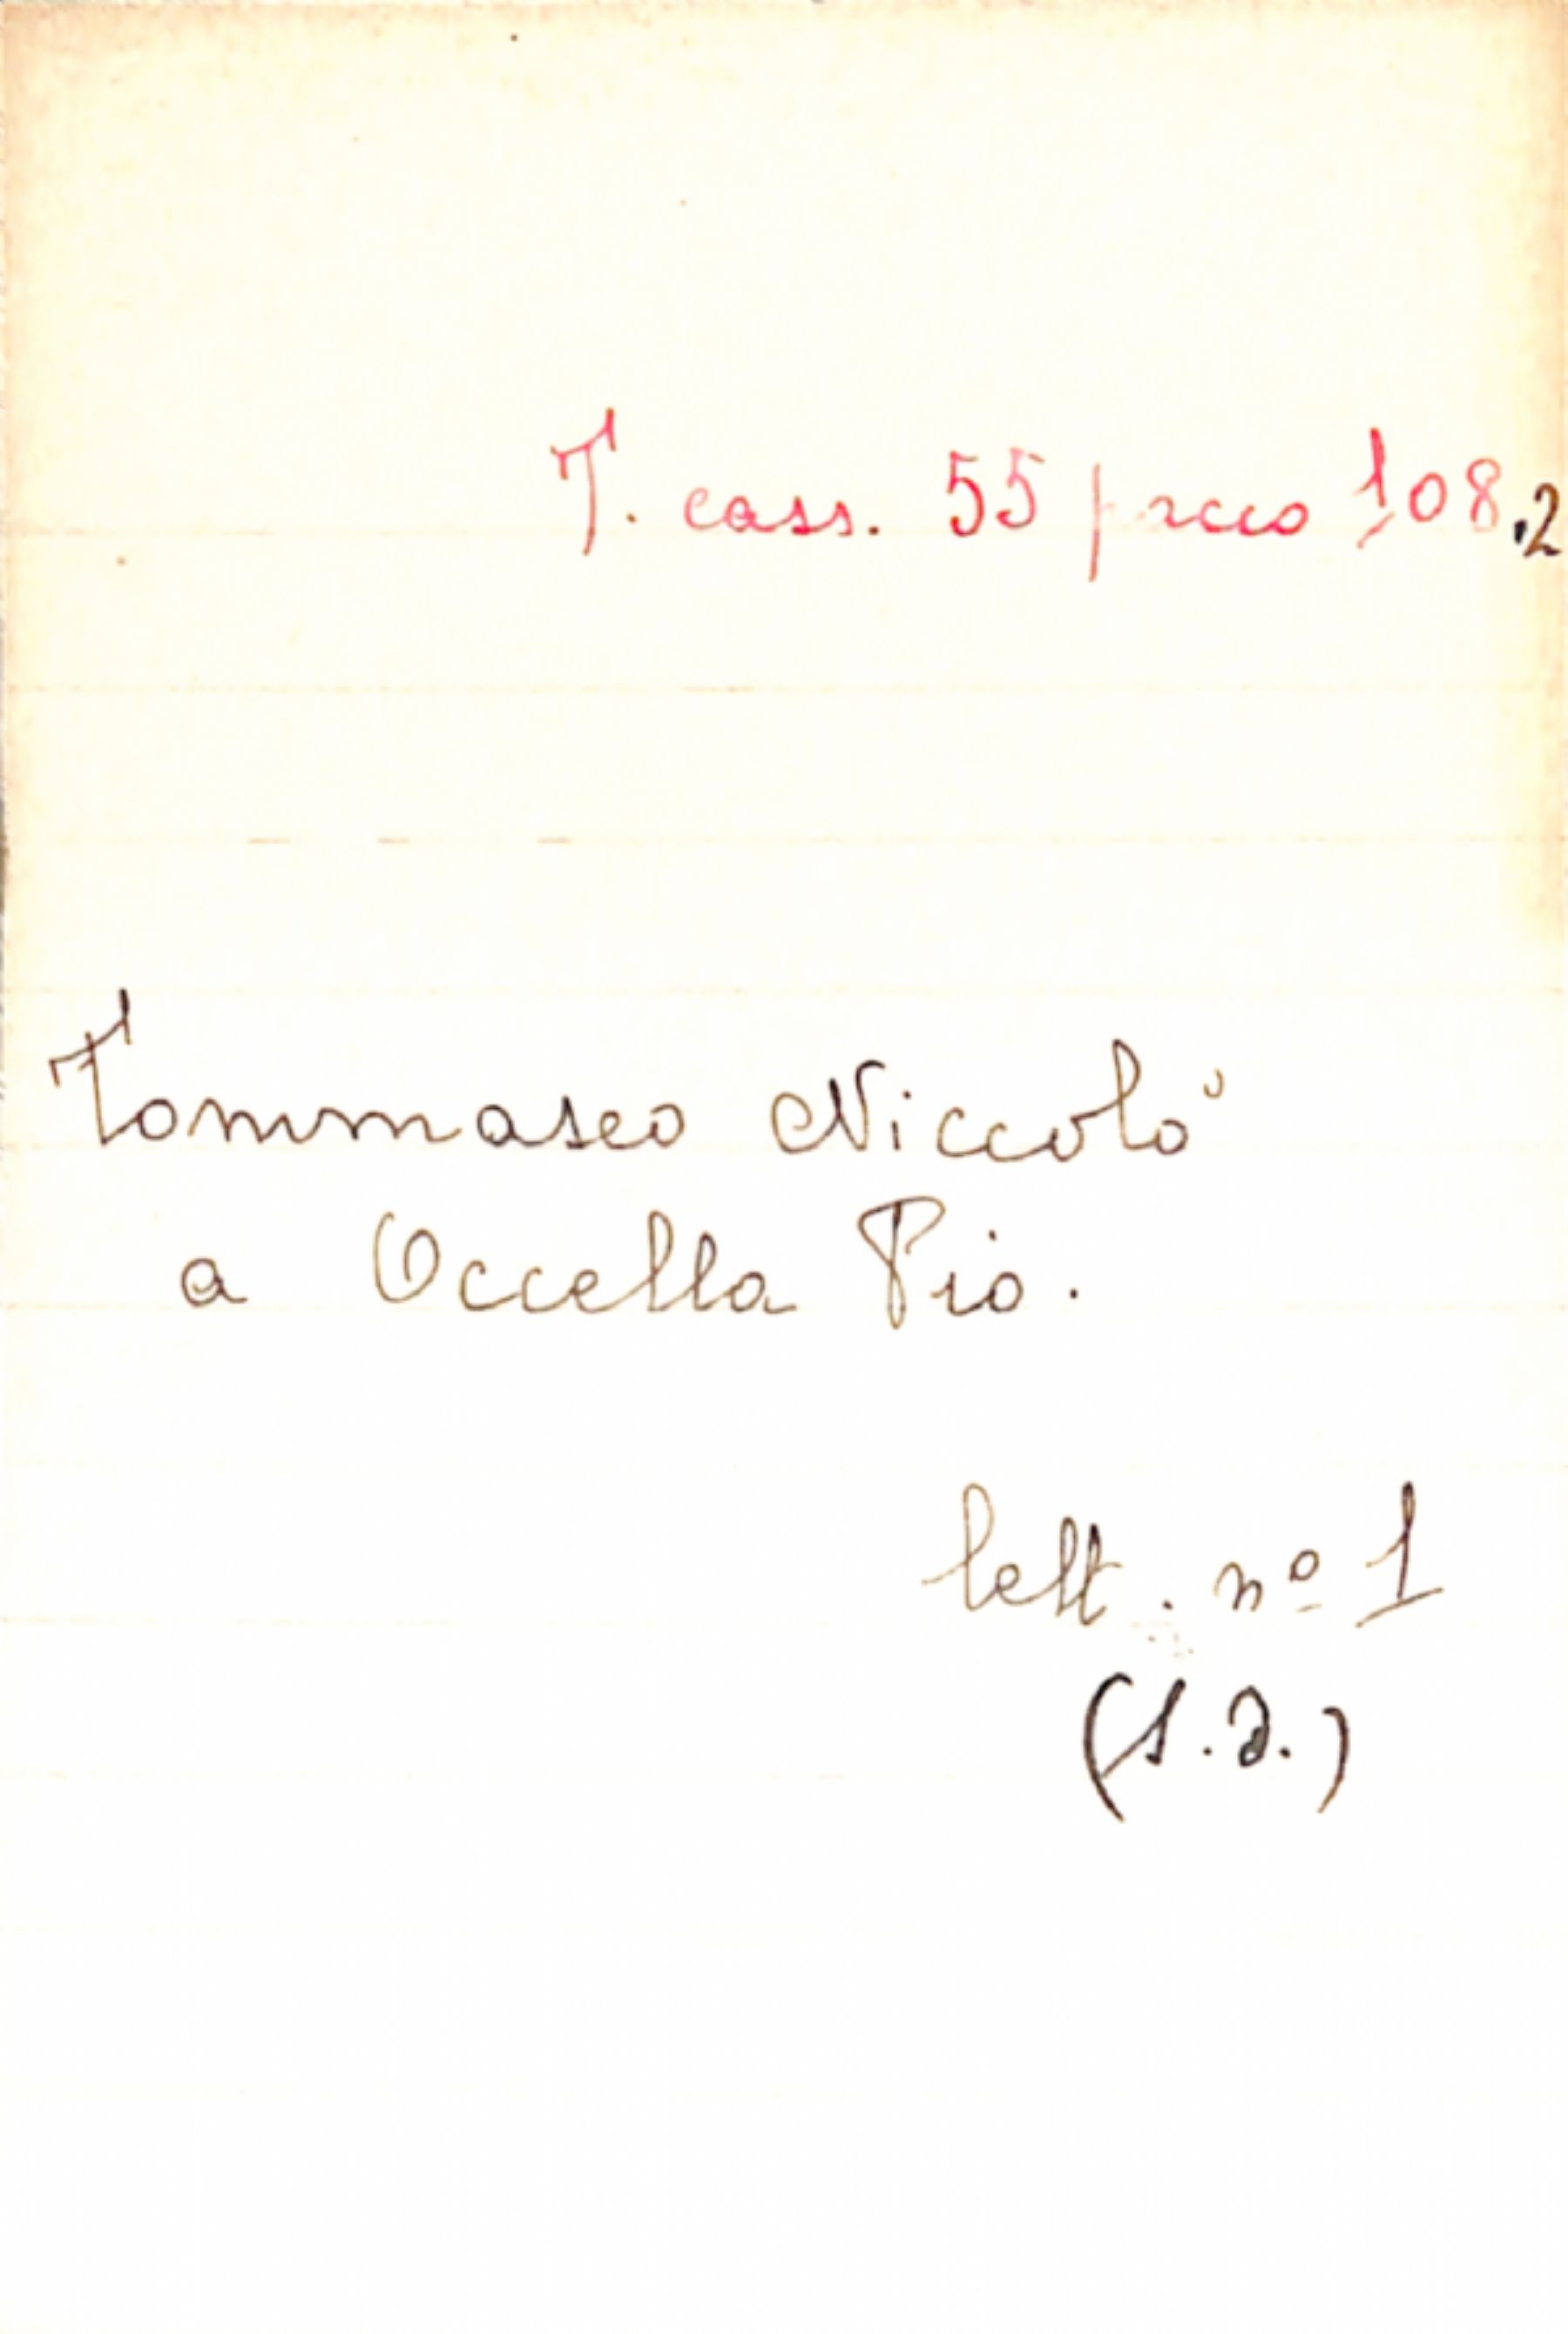 T. cass. 55 pacco 108.2
Tommaseo Niccolò
a Occella Pio.
lett. nº 1
(s.d.)